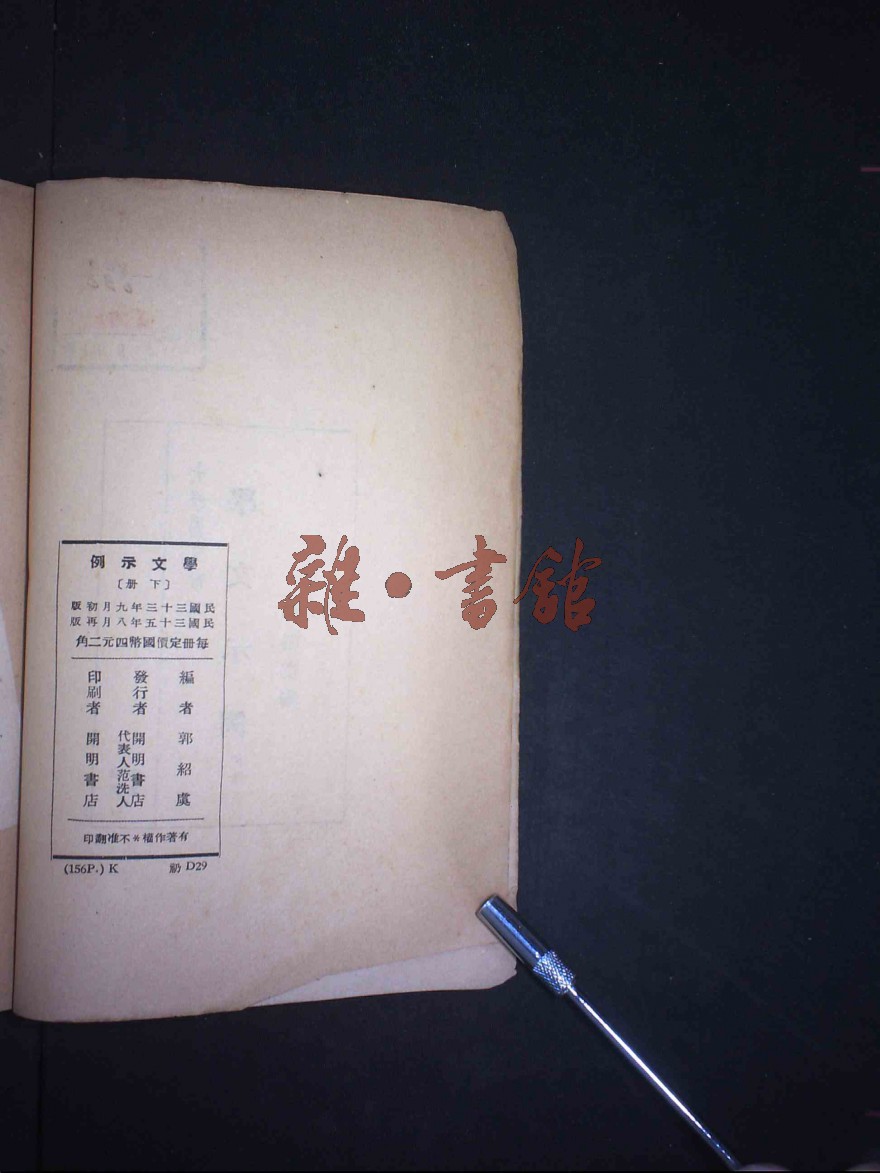 學文示例
〔下冊〕
民國三十三年九月初版
民國三十五年八月再版
每冊定價國幣四元二角
編者 郭紹虞
發行者 開明書店
代表人范洗人
印刷者 開明書店
有著作權*不准翻印
(156P.) K
D29
雜•書館